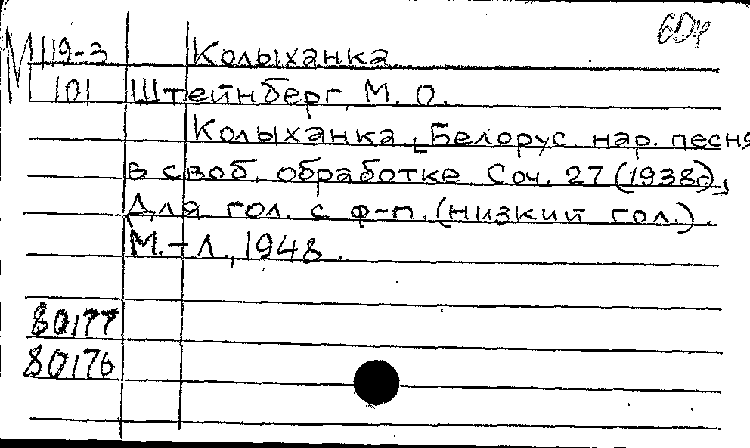 М 119-3 Колыханка
101 Штейнберг, М. О.
Колыханка [Белорус. нар. песня
в своб. обработке Соч. 27 (1938г),
Для гол. с ф-п. (низкий гол.).
М.-Л., 1948.
80177
80176